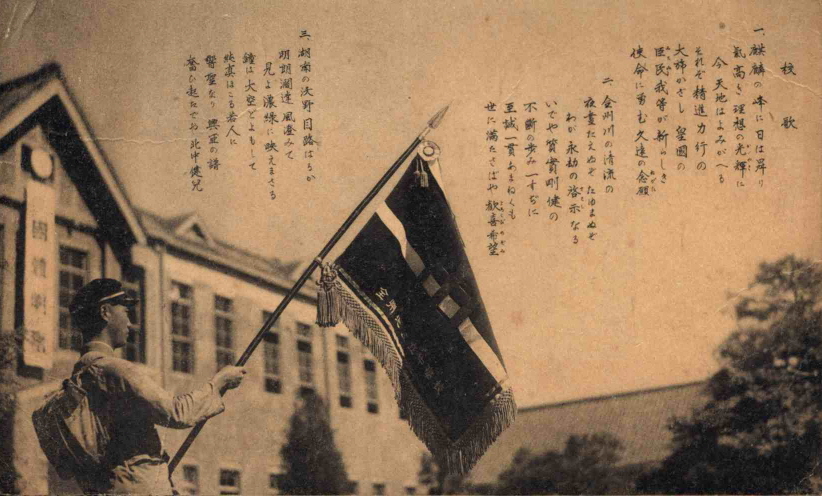 校歌
一、麒麟の峰に日は昇り
氣高き理想の光輝に
今天地はよみがへる
それぞ精進力行の
大旆かざし皇國の
臣民我等が新らしき
使命に勇む久遠の念願
二、全州川の清流の
夜晝たえぬぞたゆまぬぞ
わが永劫の啓示なる
いでや質實剛健の
不斷の歩み一すぢに
至誠一貫あまねくも
世に満たさばや歓喜希望
三、湖南の沃野目路はるか
明朗濶達風澄みて
見よ濃緑に映えまさる
鐘は大空どよもして
映ゆはこも若人に
響聖なり興亜の譜
奮ひ起たでや北中健兒
國體明徴
全州北